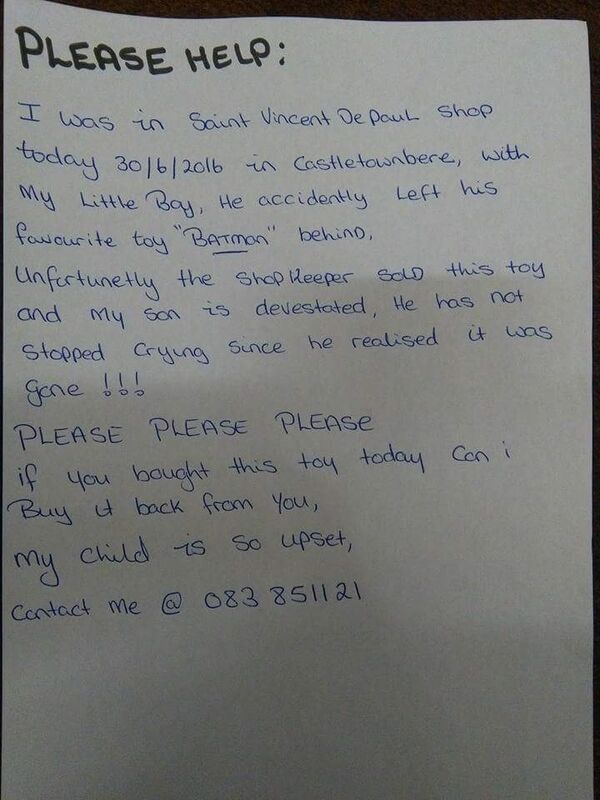 PLEASE HELP:
I was in Saint Vincent De Paul shop
today 30/6/2016 in Castletownbere, with
My Little Boy, He accidently Left his
favourite toy "BATman" behind,
Unfortunetly the shop keeper sold this toy
and my son is devestated, He has not
Stopped Crying since he realised it was
gone !!!
PLEASE PLEASE PLEASE
if you bought this toy today Can i
Buy it back from you,
my child is so upset,
Contact me @ 083 851121